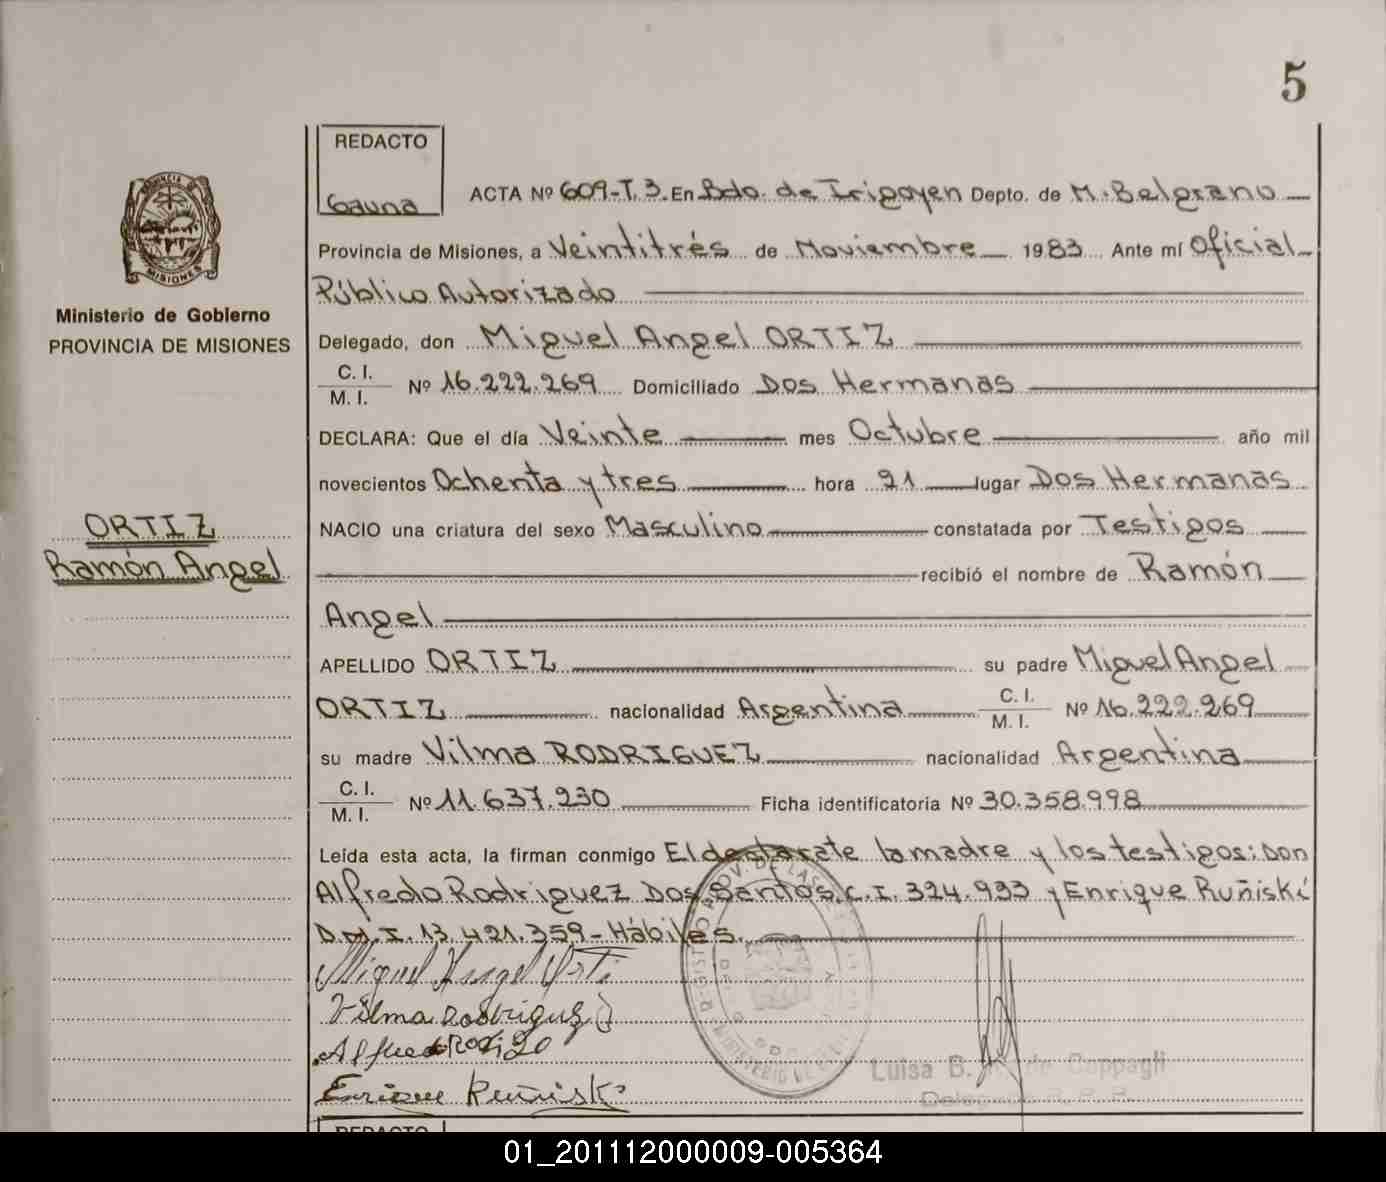 5
REDACTO
Gauna
PROVINCIA DE
MISIONES
Ministerio de Gobierno
PROVINCIA DE MISIONES
ORTIZ
Ramón Angel
ACTA Nº 609-T.3. En Bdo. de Irigoyen Depto. de M. Belgrano
Provincia de Misiones, a Veintitrés de Noviembre 1983 Ante mí Oficial
Público Autorizado
Delegado, don Miguel Angel ORTIZ
C. I.
M. I. Nº 16.222.269 Domiciliado Dos Hermanas
DECLARA: Que el día Veinte mes Octubre año mil
novecientos Ochenta y tres hora 21 lugar Dos Hermanas
NACIO una criatura del sexo Masculino constatada por Testigos
recibió el nombre de Ramón
Angel
APELLIDO ORTIZ su padre Miguel Angel
ORTIZ nacionalidad Argentina C. I.
M. I. Nº 16.222.269
su madre Vilma RODRIGUEZ nacionalidad Argentina
C. I.
M. I. Nº 11.637.230 Ficha identificatoria Nº 30.358.998
Leída esta acta, la firman conmigo El declarate la madre y los testigos: Don
Alfredo Rodriguez Dos Santos C.I. 324.933 y Enrique Ruñiski
D.M.I. 13.421.359 - Hábiles.
Miguel Angel Orti
Vilma Rodriguz
Alfredo
Enrique Ruñiski
Luisa B. de Coppagli
REDACTO
01_201112000009-005364